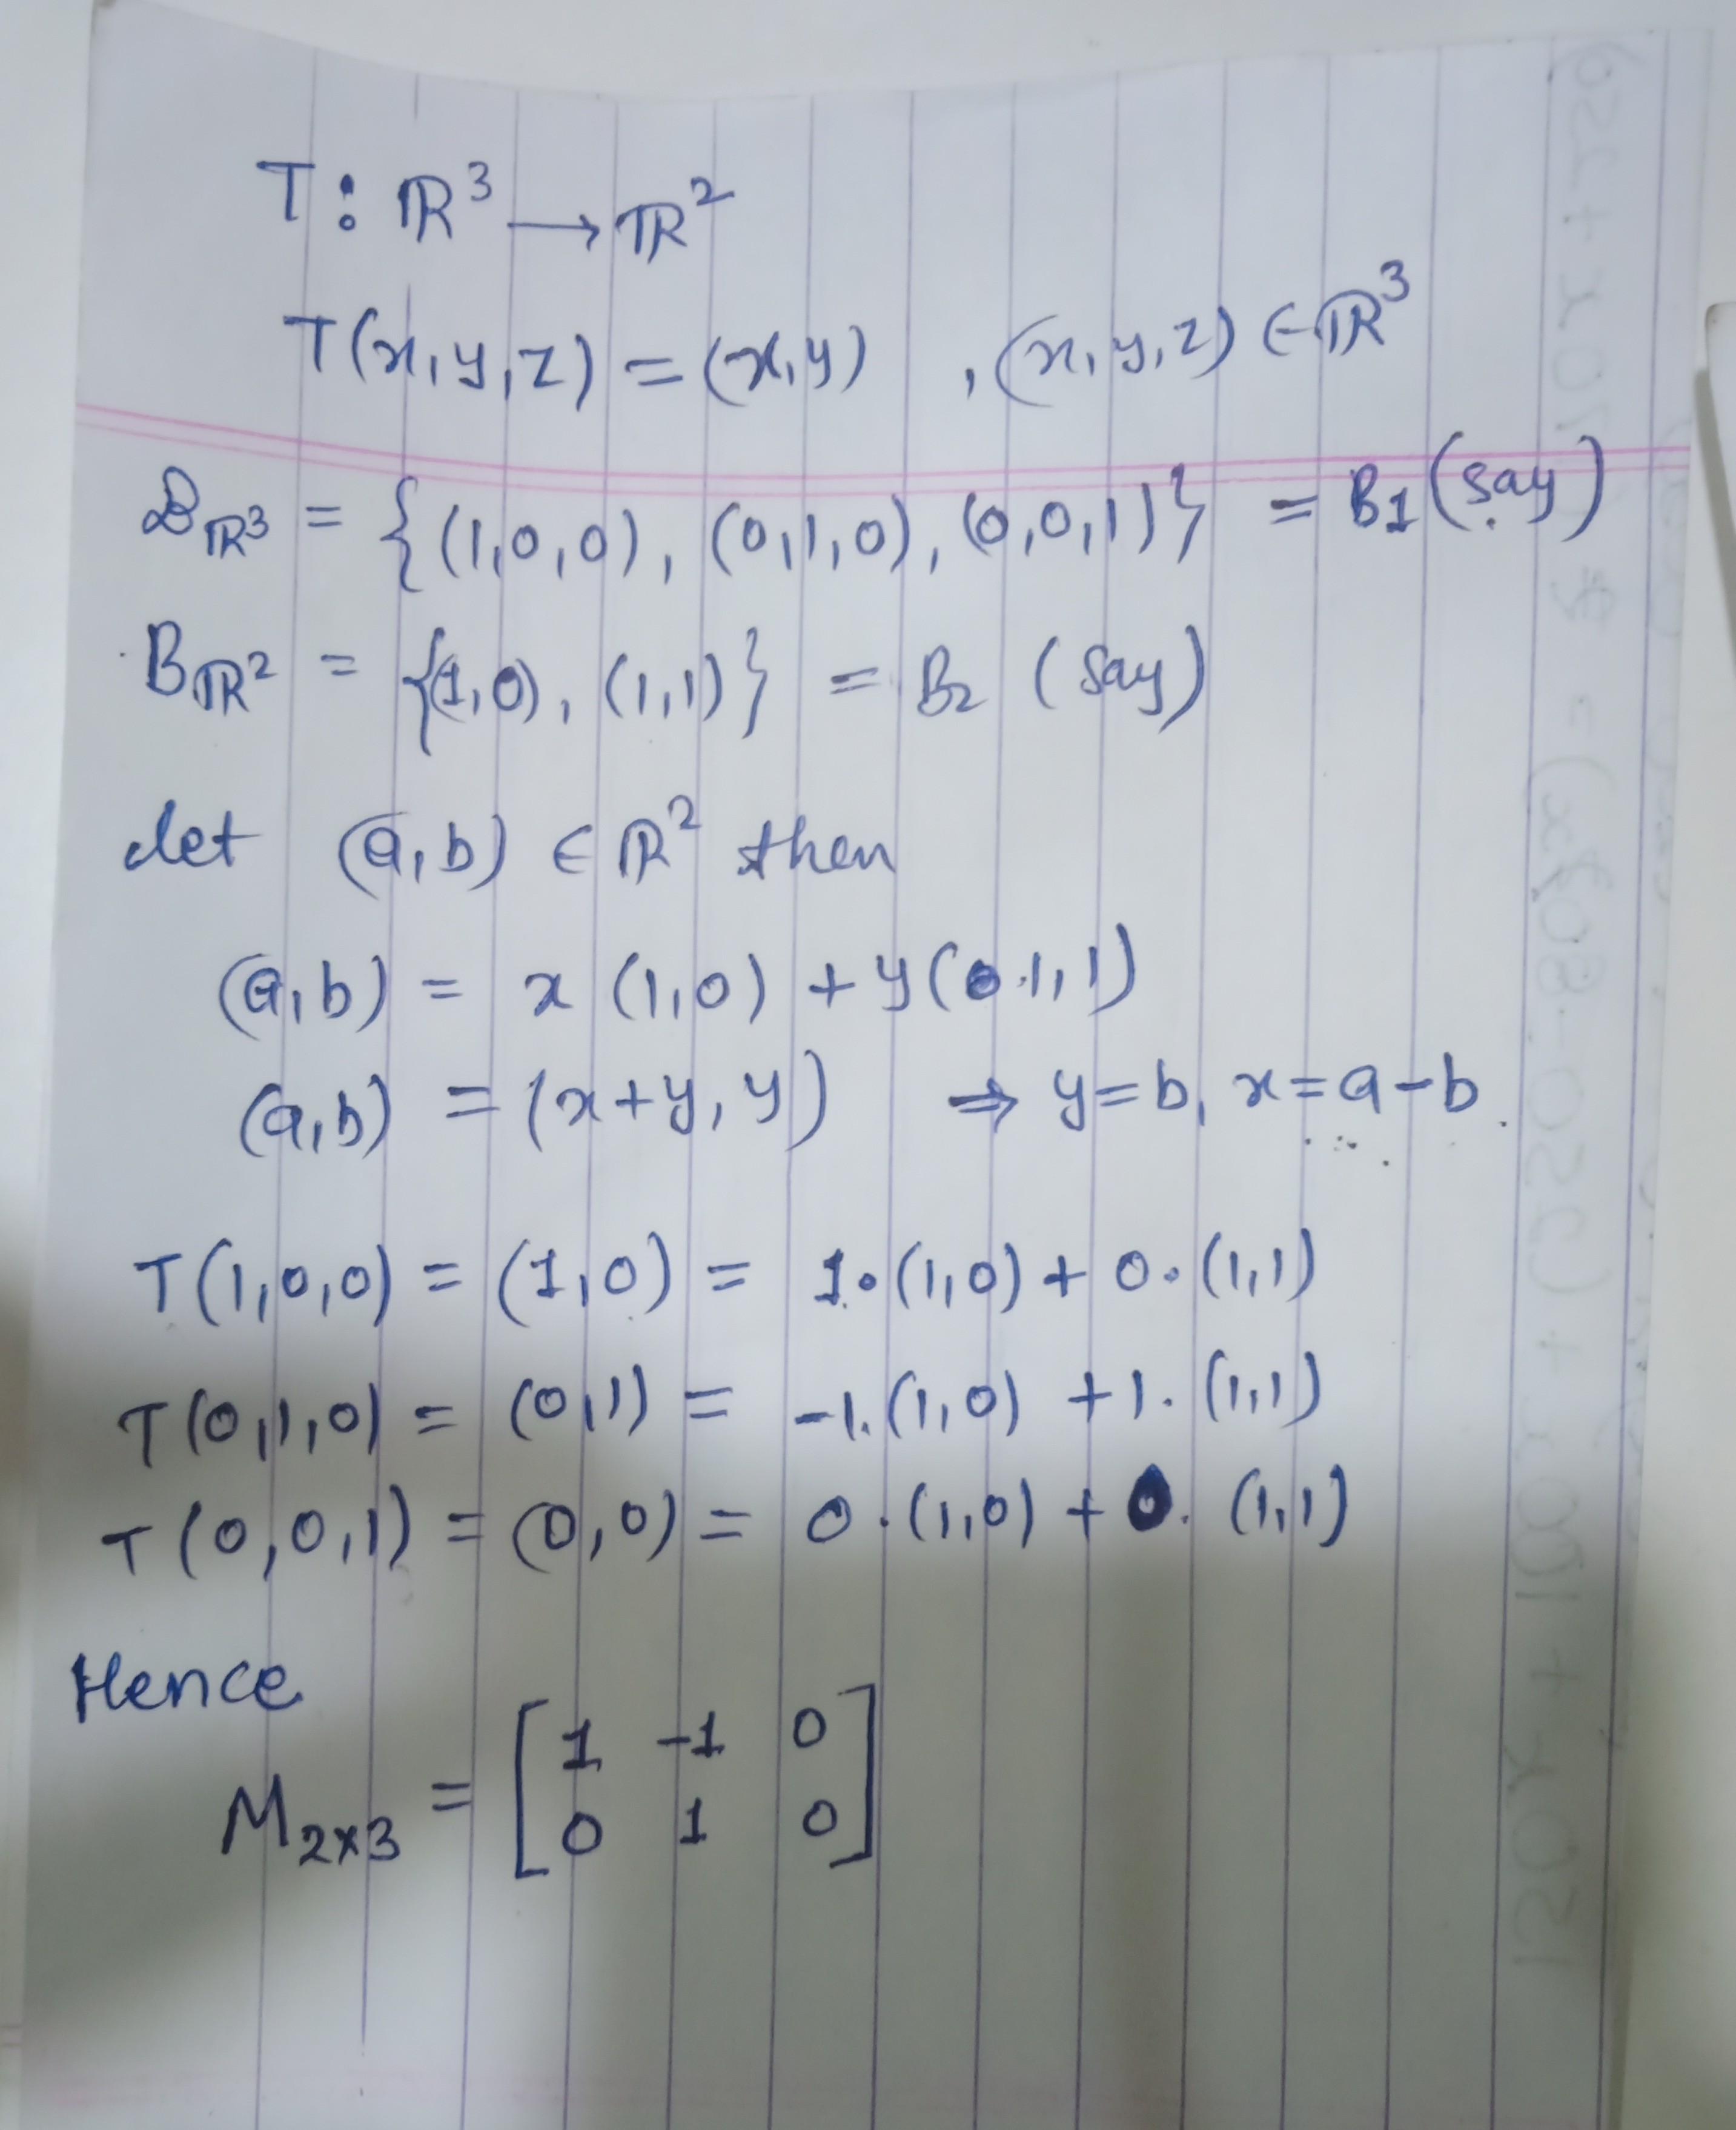 T : ℝ³ → ℝ²
T(x, y, z) = (x, y) , (x, y, z) ∈ ℝ³
B_ℝ³ = {(1,0,0), (0,1,0), (0,0,1)} = B1 (say)
B_ℝ² = {(1,0), (1,1)} = B2 (say)
Let (a,b) ∈ ℝ² then
(a,b) = x (1,0) + y (1,1)
(a,b) = (x+y, y) ⇒ y=b, x=a-b.
T(1,0,0) = (1,0) = 1.(1,0) + 0.(1,1)
T(0,1,0) = (0,1) = -1.(1,0) + 1.(1,1)
T(0,0,1) = (0,0) = 0.(1,0) + 0.(1,1)
Hence
M_2×3 = [1 -1 0
0 1 0]